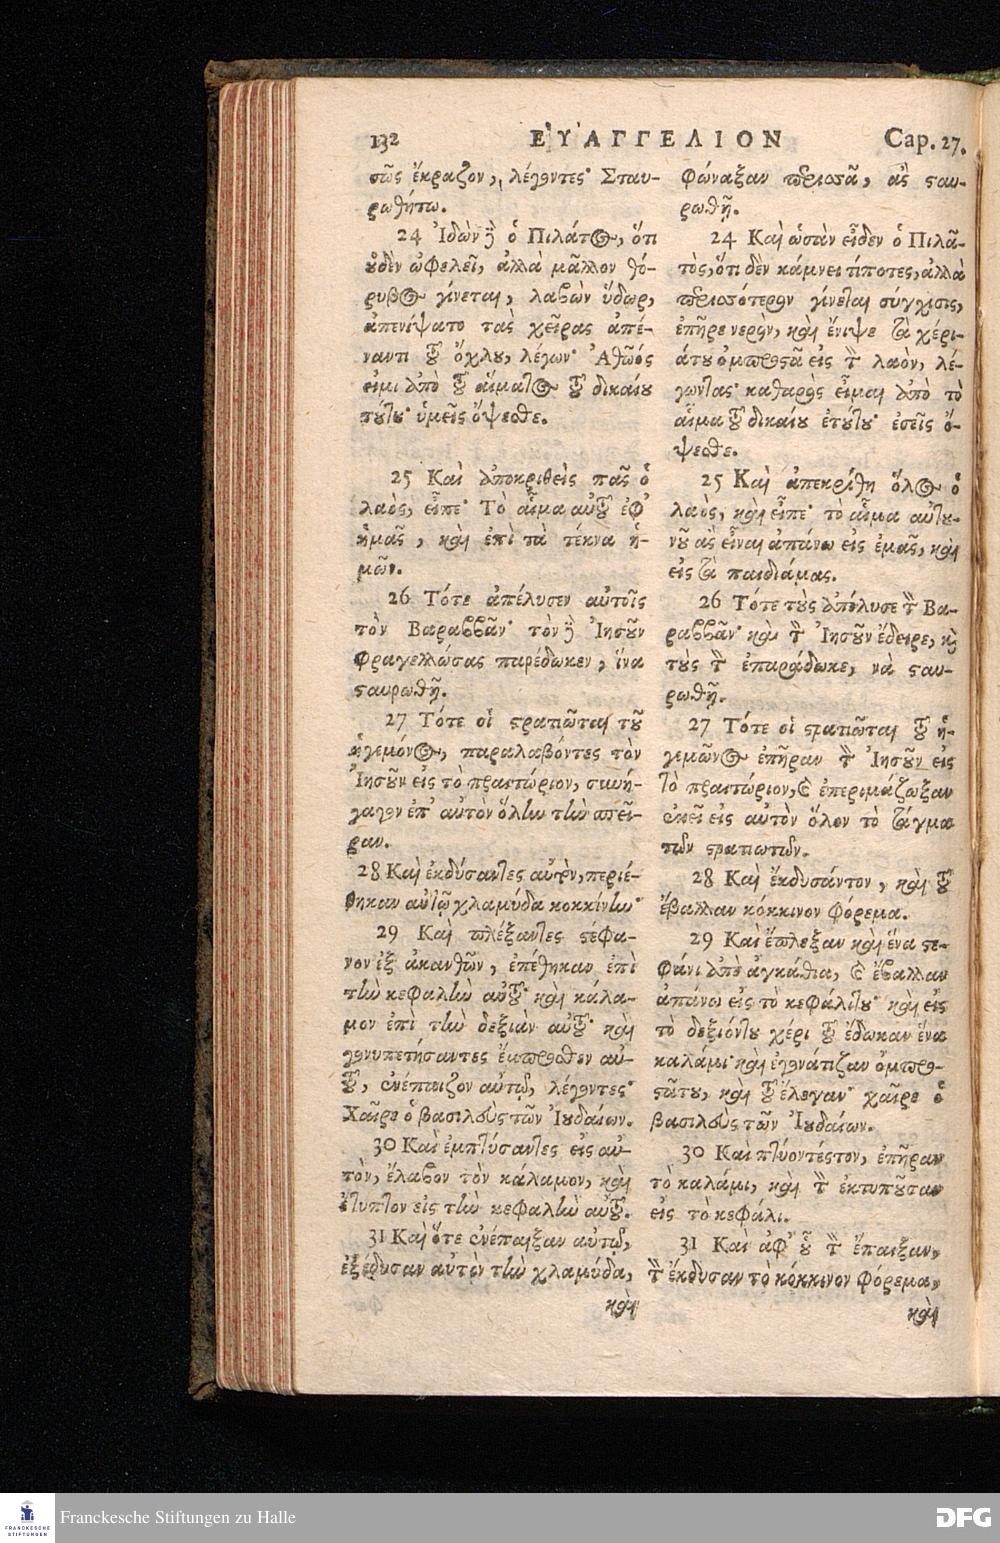 132 ΕΥΑΓΓΕΛΙΟΝ Cap. 27.
σῶς ἔκραζον, λέγοντες· Σταυ-
ρωθήτω.
24 Ἰδὼν δὲ ὁ Πιλάτος, ὅτι
οὐδὲν ὠφελεῖ, ἀλλὰ μᾶλλον θό-
ρυβος γίνεται, λαβὼν ὕδωρ,
ἀπενίψατο τὰς χεῖρας ἀπέ-
ναντι τοῦ ὄχλου, λέγων· Ἀθῶός
εἰμι ἀπὸ τοῦ αἵματος τοῦ δικαίου
τούτου· ὑμεῖς ὄψεσθε.
25 Καὶ ἀποκριθεὶς πᾶς ὁ
λαὸς, εἶπε· Τὸ αἷμα αὐτοῦ ἐφ'
ἡμᾶς, καὶ ἐπὶ τὰ τέκνα ἡ-
μῶν.
26 Τότε ἀπέλυσεν αὐτοῖς
τὸν Βαραββᾶν· τὸν δὲ Ἰησοῦν
φραγελλώσας παρέδωκεν, ἵνα
σταυρωθῇ.
27 Τότε οἱ στρατιῶται τοῦ
ἡγεμόνος, παραλαβόντες τὸν
Ἰησοῦν εἰς τὸ πραιτώριον, συνή-
γαγον ἐπ' αὐτὸν ὅλην τὴν σπεῖ-
ραν.
28 Καὶ ἐκδύσαντες αὐτὸν, περιέ-
θηκαν αὐτῷ χλαμύδα κοκκίνην·
29 Καὶ πλέξαντες στέφα-
νον ἐξ ἀκανθῶν, ἐπέθηκαν ἐπὶ
τὴν κεφαλὴν αὐτοῦ· καὶ κάλα-
μον ἐπὶ τὴν δεξιὰν αὐτοῦ· καὶ
γονυπετήσαντες ἔμπροσθεν αὐ-
τοῦ, ἐνέπαιζον αὐτῷ, λέγοντες·
Χαῖρε ὁ βασιλεὺς τῶν Ἰουδαίων.
30 Καὶ ἐμπτύσαντες εἰς αὐ-
τὸν, ἔλαβον τὸν κάλαμον, καὶ
ἔτυπτον εἰς τὴν κεφαλὴν αὐτοῦ.
31 Καὶ ὅτε ἐνέπαιξαν αὐτῷ,
ἐξέδυσαν αὐτὸν τὴν χλαμύδα,
καὶ
φώναξαν περισσᾶ, ἂς σταυ-
ρωθῇ.
24 Καὶ ὡσὰν εἶδεν ὁ Πιλᾶ-
τος, ὅτι δὲν κάμνει τίποτες, ἀλλὰ
περισσότερον γίνεται σύγχισις,
ἐπῆρε νερὸν, καὶ ἔνιψε τὰ χέρι-
άτου ὀμπροστᾶ εἰς τὸν λαὸν, λέ-
γωντας· καθαρὸς εἶμαι ἀπὸ τὸ
αἷμα τοῦ δικαίου ἐτούτου· ἐσεῖς ὄ-
ψεσθε.
25 Καὶ ἀπεκρίθη ὅλος ὁ
λαὸς, καὶ εἶπε· τὸ αἷμα αὐτου-
νοῦ ἂς εἶναι ἀπάνω εἰς ἐμᾶς, καὶ
εἰς τὰ παιδιάμας.
26 Τότε τοὺς ἀπόλυσε τὸν Βα-
ραββᾶν· καὶ τὸν Ἰησοῦν ἔδειρε, καὶ
τοὺς τὸν ἐπαράδωκε, νὰ σταυ-
ρωθῇ.
27 Τότε οἱ στρατιῶται τοῦ ἡ-
γεμῶνος ἐπῆραν τὸν Ἰησοῦν εἰς
τὸ πραιτώριον, καὶ ἐπεριμάζωξαν
ἐκεῖ εἰς αὐτὸν ὅλον τὸ τάγμα
τῶν στρατιωτῶν.
28 Καὶ ἔκδυσάντον, καὶ τοῦ
ἔβαλλαν κόκκινον φόρεμα.
29 Καὶ ἔπλεξαν καὶ ἕνα στε-
φάνι ἀπὸ ἀγκάθια, καὶ ἔβαλλαν
ἀπάνω εἰς τὸ κεφάλιτου· καὶ εἰς
τὸ δεξιόντου χέρι τοῦ ἔδωκαν ἕνα
καλάμι· καὶ ἐγονάτιζαν ὀμπρο-
στᾶτου, καὶ τοῦ ἔλεγαν· χαῖρε ὁ
βασιλεὺς τῶν Ἰουδαίων.
30 Καὶ πτύοντέςτον, ἐπῆραν
τὸ καλάμι, καὶ τὸν ἐκτυποῦσαν
εἰς τὸ κεφάλι.
31 Καὶ ἀφ' οὗ τὸν ἔπαιξαν,
τὸν ἔκδυσαν τὸ κόκκινον φόρεμα,
καὶ
FRANCKESCHE
STIFTUNGEN
Franckesche Stiftungen zu Halle
DFG